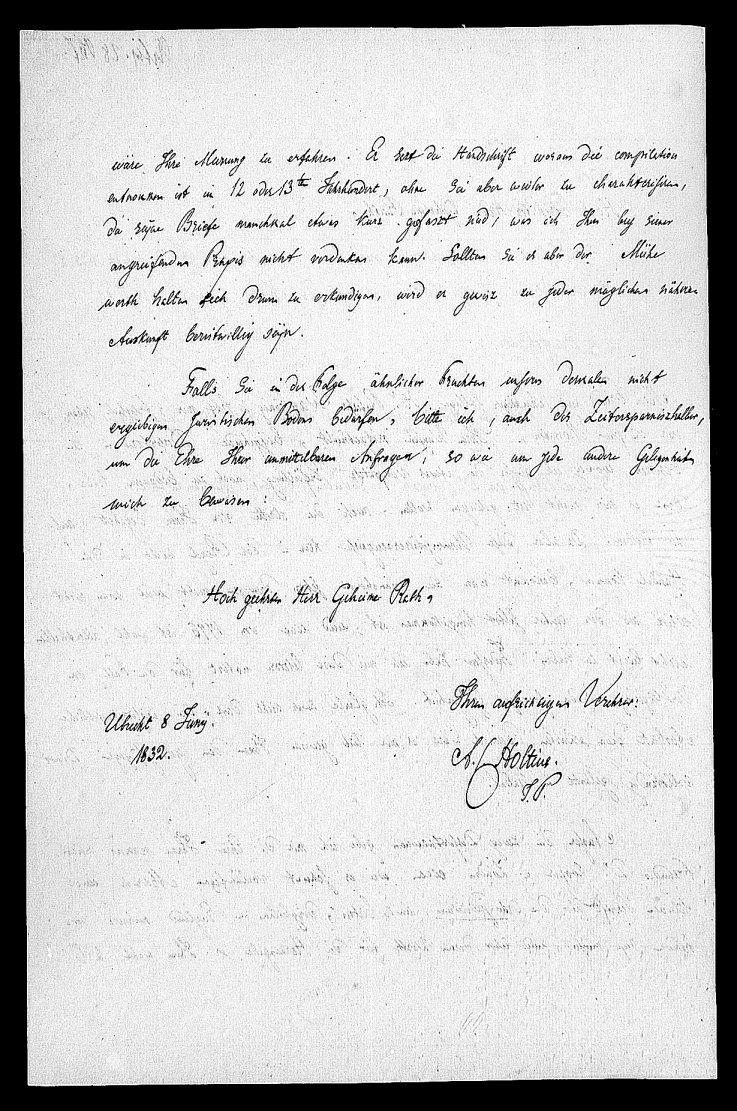 wäre Ihre Meinung zu erfahren. Er setzt die Handschrift woraus die compilation
entnommen ist in 12 oder 13th Jahrhundert, ohne Sie aber weiter zu charakterisiren,
da seyne Briefe manchmal etwas kurz gefaszt sind, was ich Ihm bey seiner
angreifenden Praxis nicht verdenken kann. Sollten Sie es aber der Mühe
werth halten sich drum zu erkundigen, wird er gewisz zu jeder möglichen näheren
Auskunft bereitwillig seyn.
Falls Sie in der Folge ähnlicher Früchten unseres dermalen nicht
ergiebigen juristischen Bodens bedürfen, bitte ich, auch der Zeitersparniszhalber,
um die Ehre Ihrer unmittelbaren Anfragen, so wie um jede andere Gelegenheit
mich zu beweisen:
Hoch geehrten Herr Geheime Rath,
Ihren aufrichtigen Verehrer:
Utrecht 8 Juny.
1832.
A. C. Holtius.
J. P.